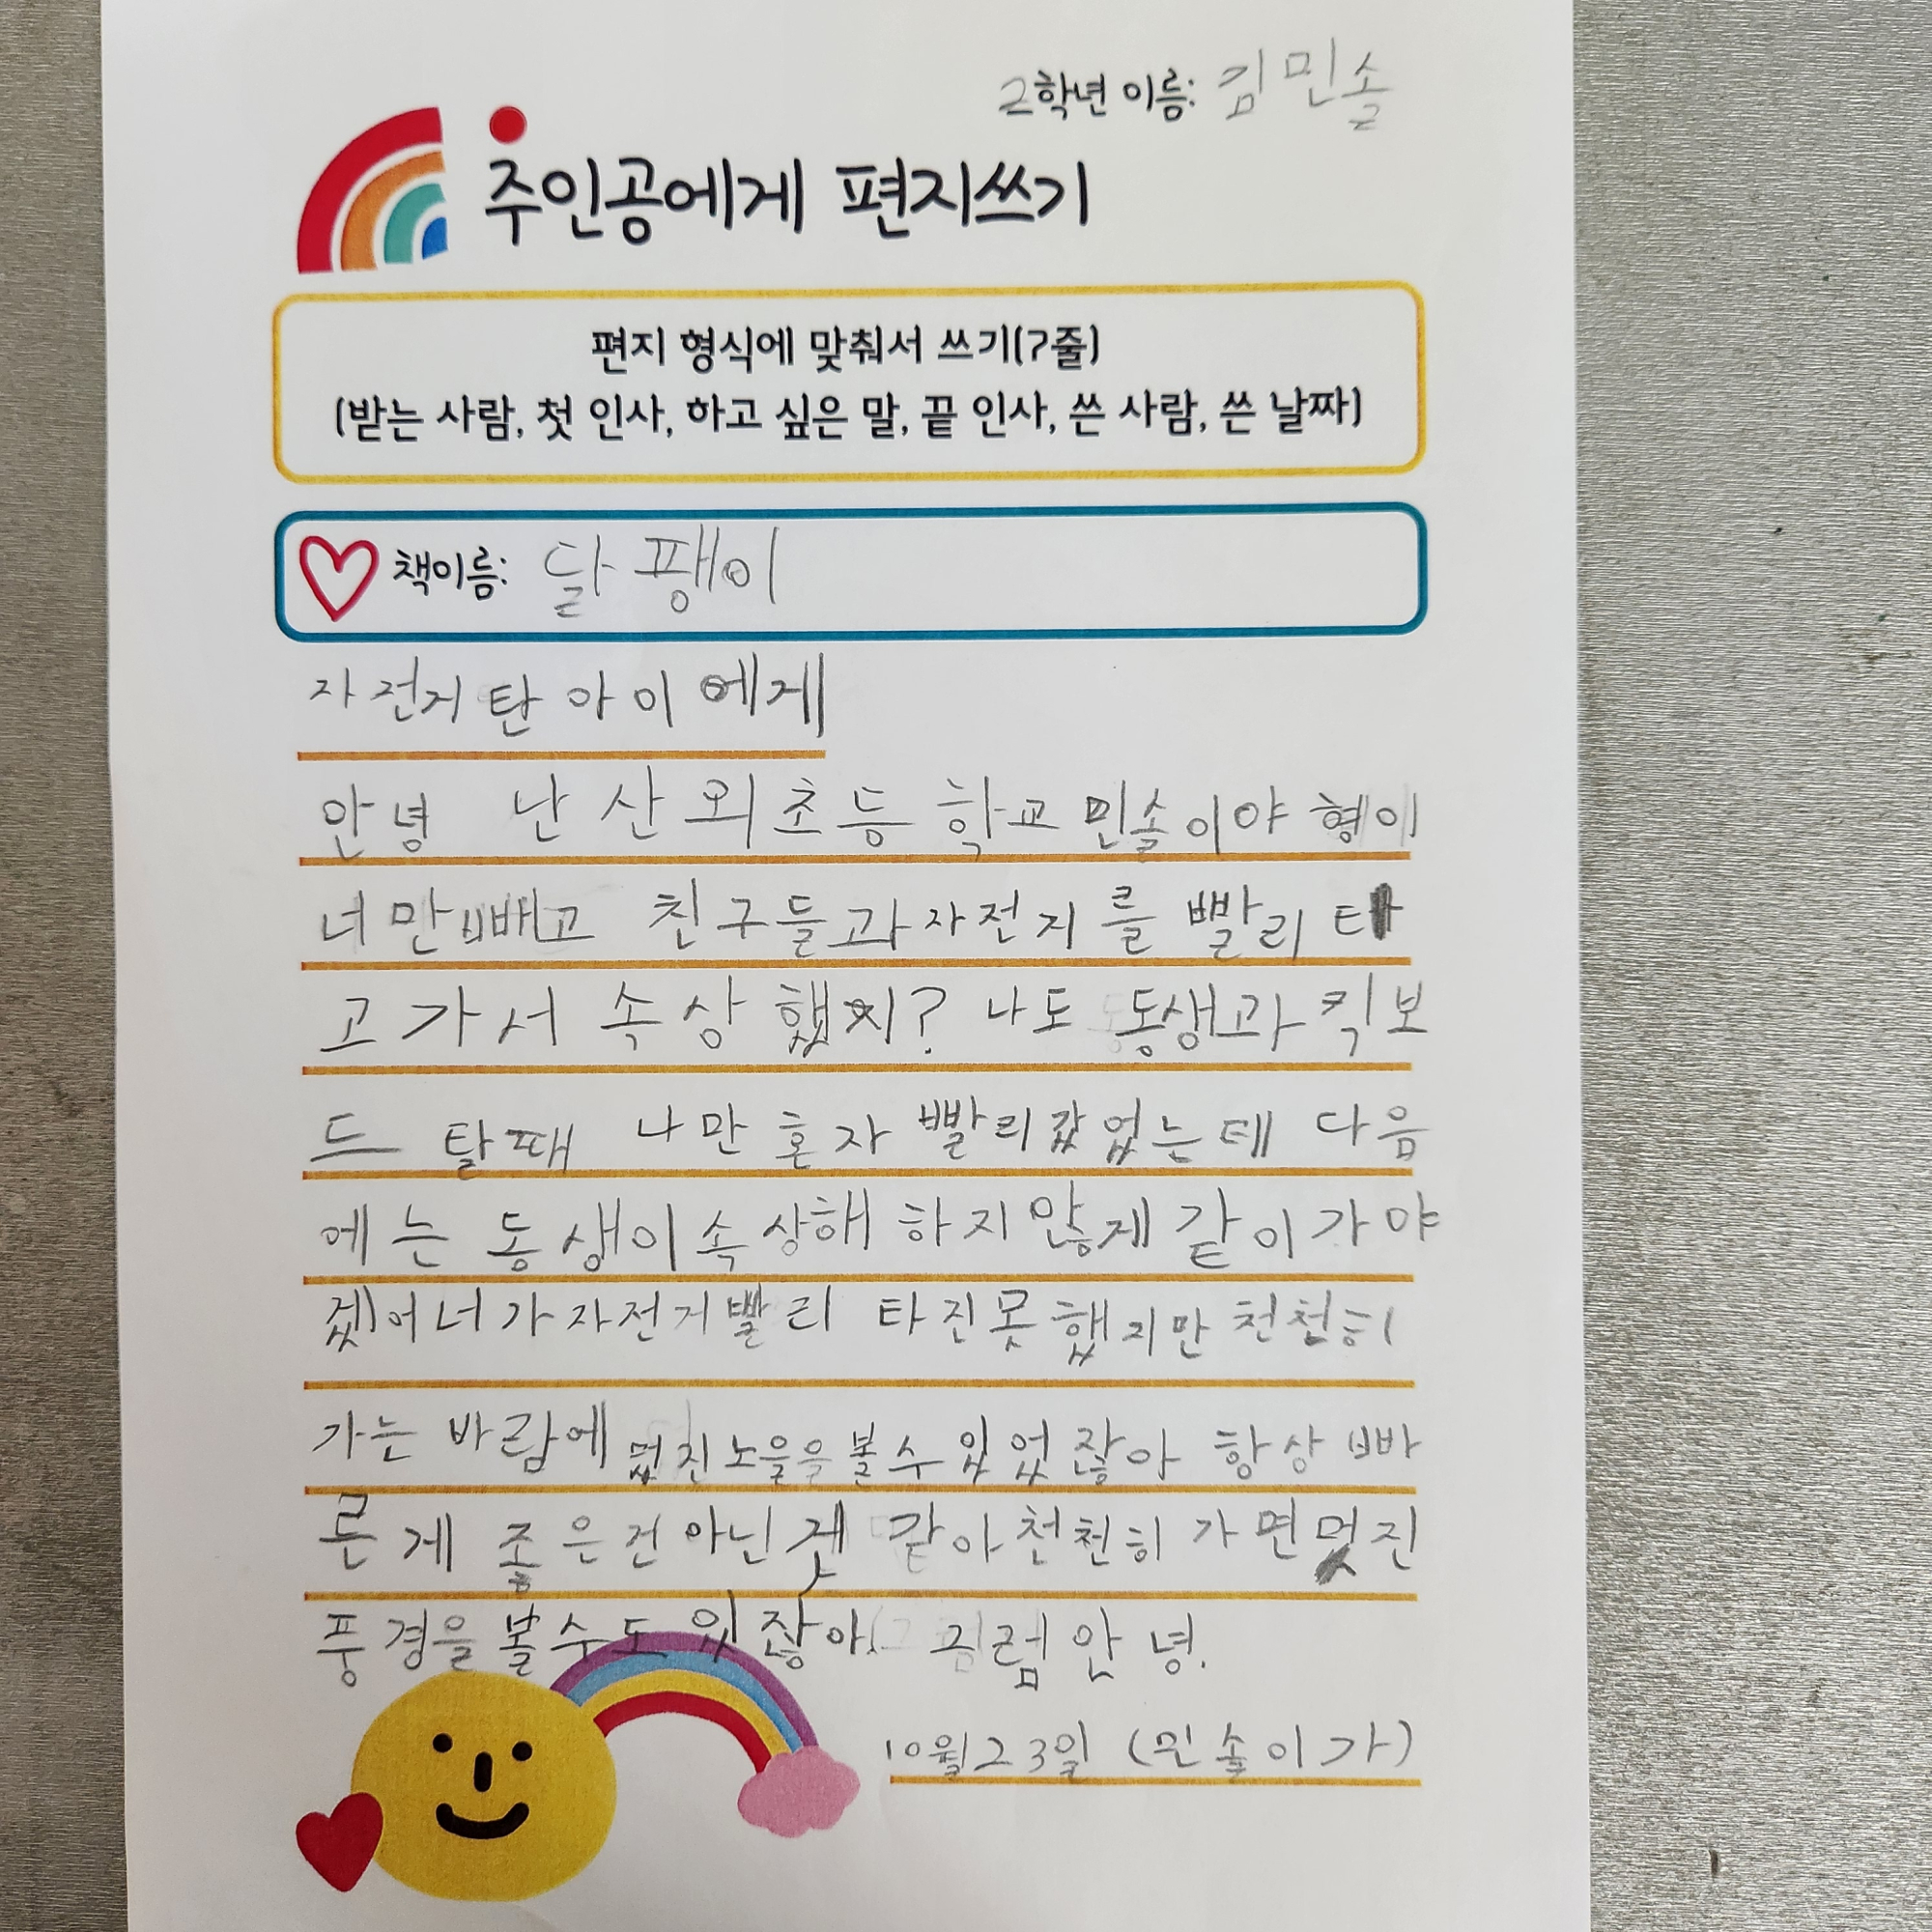 2학년 이름: 김민솔
주인공에게 편지쓰기
편지 형식에 맞춰서 쓰기(7줄)
(받는 사람, 첫 인사, 하고 싶은 말, 끝 인사, 쓴 사람, 쓴 날짜)
책이름: 달팽이
자전거 탄 아이에게
안녕 난 산외초등학교 민솔이야 형이
너만 빼고 친구들과 자전지를 빨리 타
고 가서 속상했지? 나도 동생과 킥보
드 탈때 나만 혼자 빨리 갔었는데 다음
에는 동생이 속상해 하지 않게 같이 가야
겠어 너가 자전거 빨리 타진 못했지만 천천히
가는 바람에 멋진 노을을 볼 수 있었잖아 항상 빠
른게 좋은건 아닌 것 같아 천천히 가면 멋진
풍경을 볼수도 있잖아. 그럼 안녕.
10월23일 (민솔이가)